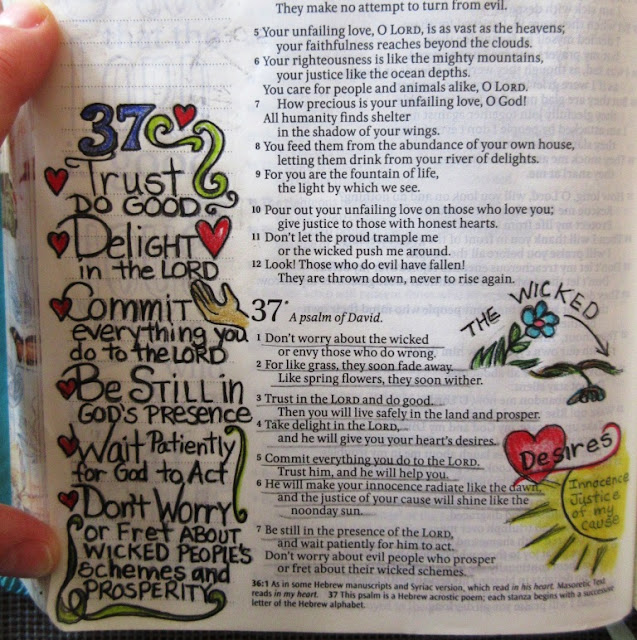 They make no attempt to turn from evil.
5 Your unfailing love, O LORD, is as vast as the heavens;
your faithfulness reaches beyond the clouds.
6 Your righteousness is like the mighty mountains,
your justice like the ocean depths.
You care for people and animals alike, O LORD.
7 How precious is your unfailing love, O God!
All humanity finds shelter
in the shadow of your wings.
8 You feed them from the abundance of your own house,
letting them drink from your river of delights.
9 For you are the fountain of life,
the light by which we see.
10 Pour out your unfailing love on those who love you;
give justice to those with honest hearts.
11 Don't let the proud trample me
or the wicked push me around.
12 Look! Those who do evil have fallen!
They are thrown down, never to rise again.
37*
A psalm of David.
1 Don't worry about the wicked
or envy those who do wrong.
2 For like grass, they soon fade away.
Like spring flowers, they soon wither.
3 Trust in the LORD and do good.
Then you will live safely in the land and prosper.
4 Take delight in the LORD,
and he will give you your heart's desires.
5 Commit everything you do to the LORD.
Trust him, and he will help you.
6 He will make your innocence radiate like the dawn,
and the justice of your cause will shine like the
noonday sun.
7 Be still in the presence of the LORD,
and wait patiently for him to act.
Don't worry about evil people who prosper
or fret about their wicked schemes.
36:1 As in some Hebrew manuscripts and Syriac version, which read in his heart. Masoretic Text
reads in my heart. 37 This psalm is a Hebrew acrostic poem; each stanza begins with a successive
letter of the Hebrew alphabet.
37
Trust
DO GOOD
DELIGHT
in the LORD
Commit
everything you
do to the LORD
Be STILL in
GOD'S PRESENCE
Wait Patiently
for God to Act
Don't Worry
or Fret ABOUT
WICKED PEOPLE'S
schemes and
PROSPERITY
THE WICKED
Desires
Innocence
Justice
of my
cause